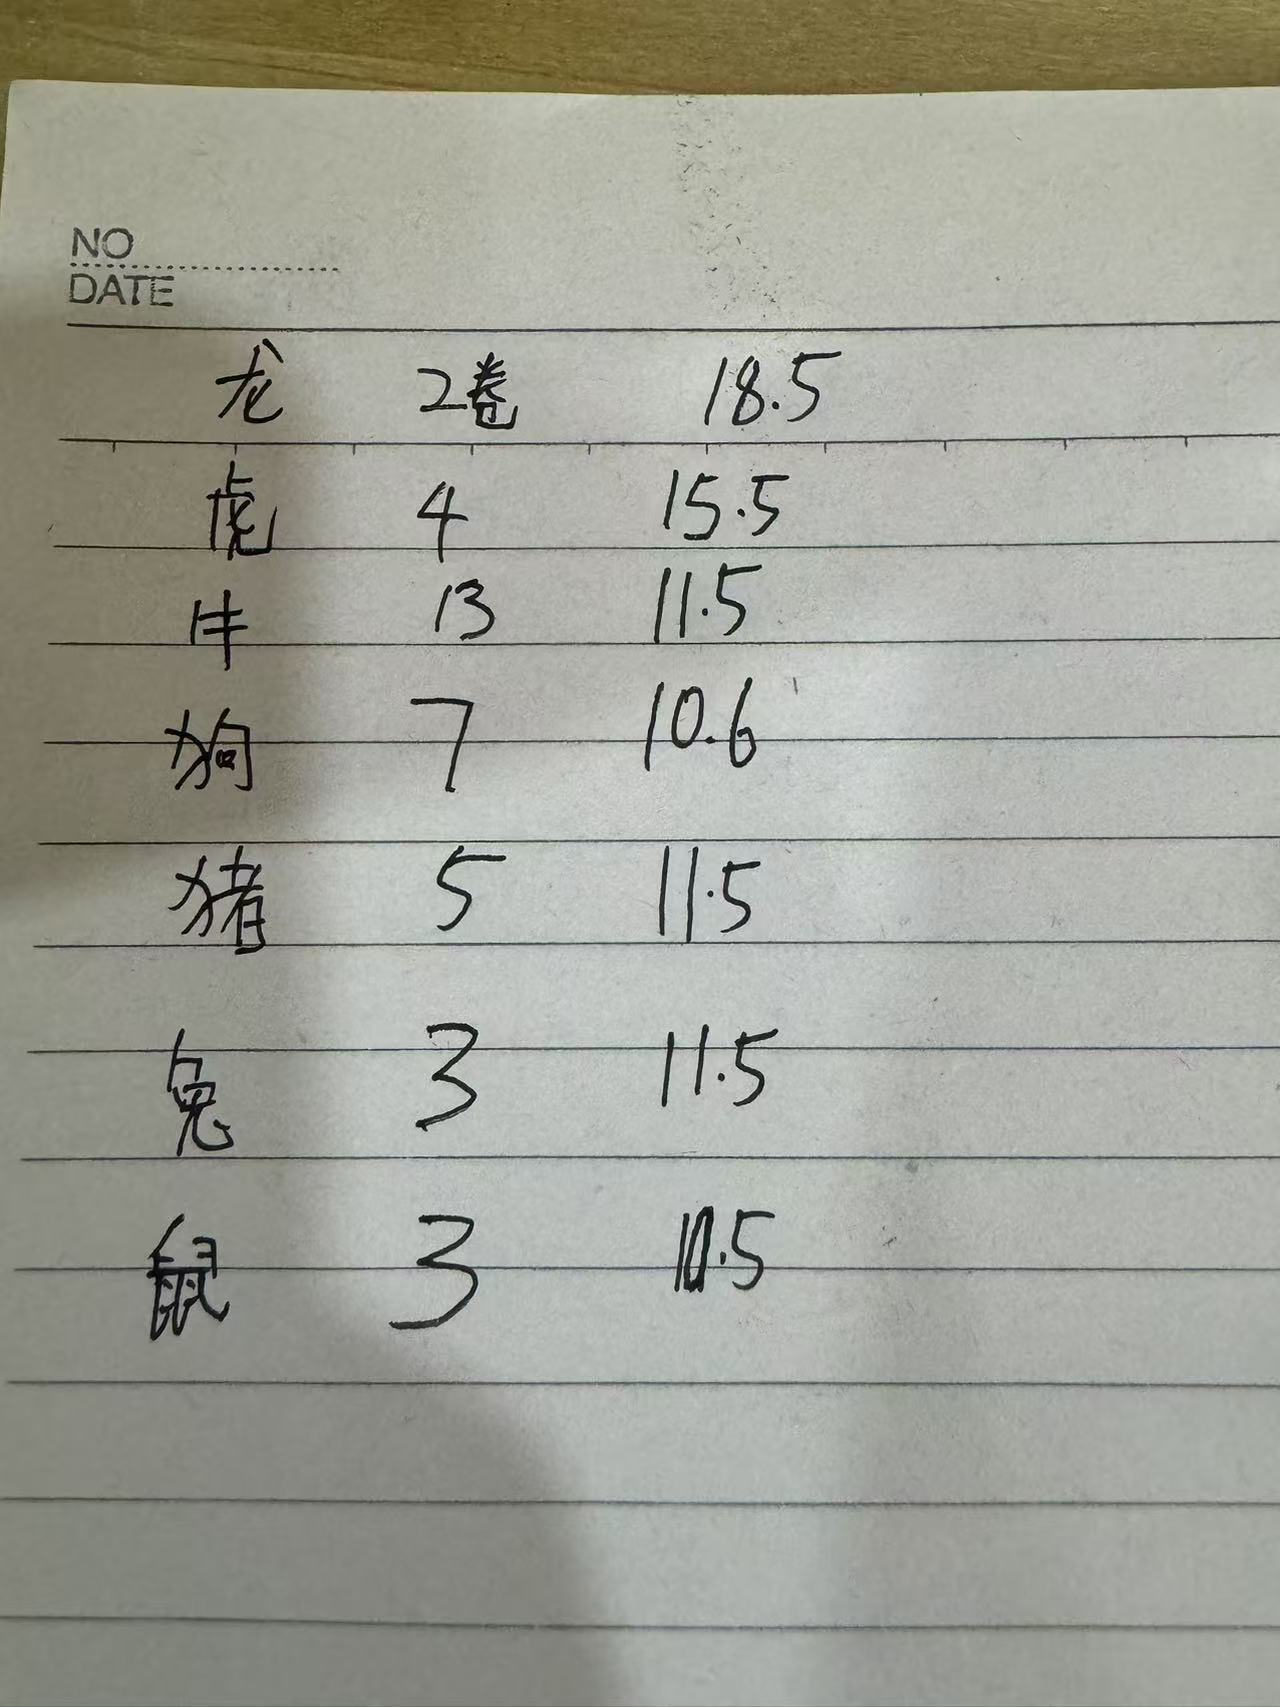 NO
DATE
龙 2卷 18.5
虎 4 15.5
牛 13 11.5
狗 7 10.6
猪 5 11.5
兔 3 11.5
鼠 3 10.5